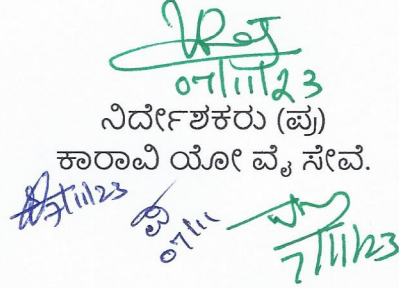 07/11/23
ನಿರ್ದೇಶಕರು (ಪ್ರ)
ಕಾರಾವಿ ಯೋ ವೈ ಸೇವೆ.
7/11/23
07/11
7/11/23